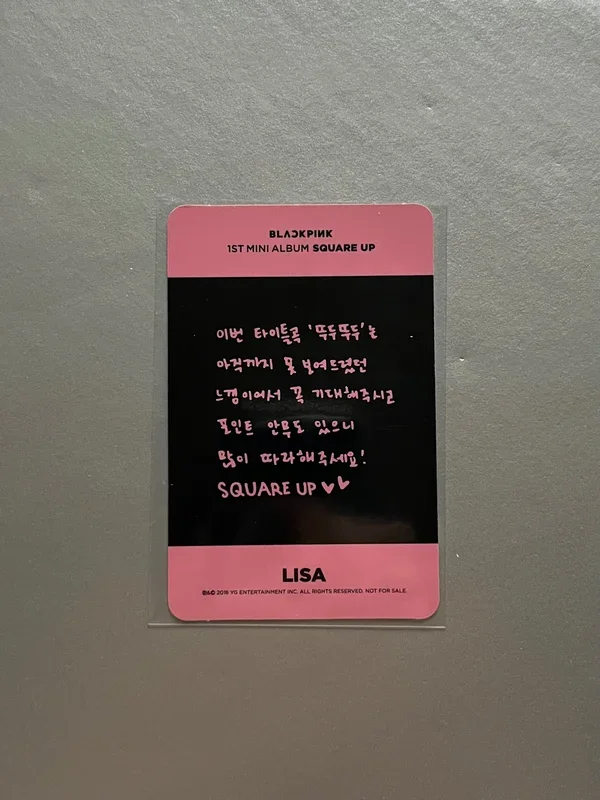 BLACKPINK
1ST MINI ALBUM SQUARE UP
이번 타이틀곡 '뚜두뚜두'는
아직까지 못 보여드렸던
느낌이에서 꼭 기대해주시고
포인트 안무도 있으니
많이 따라해주세요!
SQUARE UP
LISA
℗&© 2018 YG ENTERTAINMENT INC. ALL RIGHTS RESERVED. NOT FOR SALE.